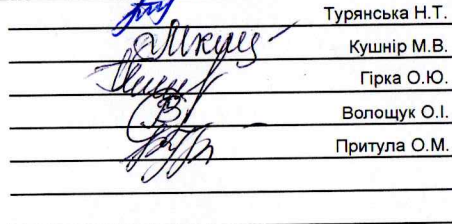 Турянська Н.Т.
Кушнір М.В.
Гірка О.Ю.
Волощук О.І.
Притула О.М.